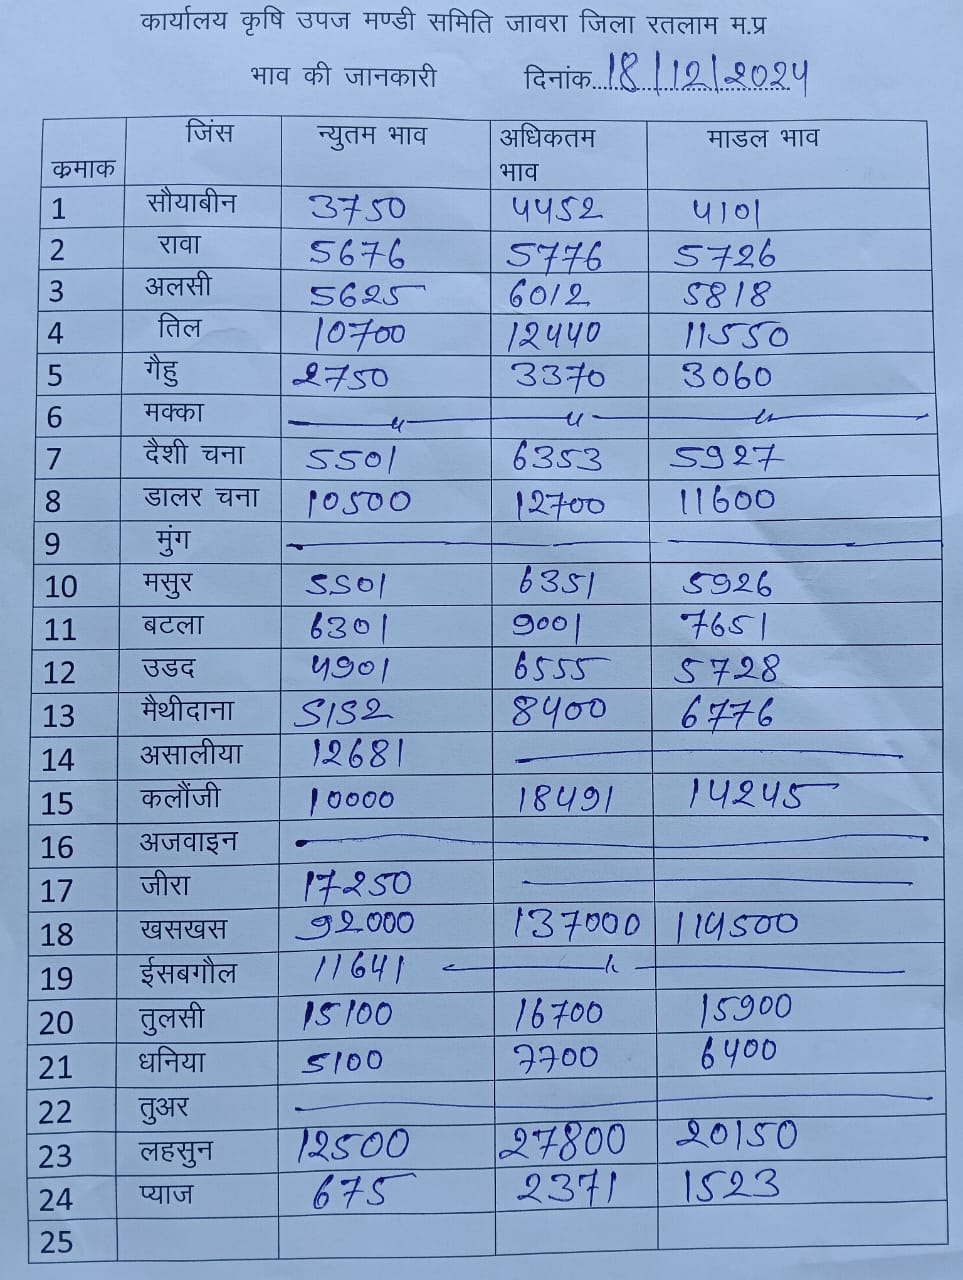 कार्यालय कृषि उपज मण्डी समिति जावरा जिला रतलाम म.प्र
भाव की जानकारी दिनांक..18/12/2024
क्रमाक जिंस न्युतम भाव अधिकतम भाव माडल भाव
1 सौयाबीन 3750 4452 4101
2 रावा 5676 5776 5726
3 अलसी 5625 6012 5818
4 तिल 10700 12440 11550
5 गैहु 2750 3370 3060
6 मक्का — " — " — " —
7 दैशी चना 5501 6353 5927
8 डालर चना 10500 12700 11600
9 मुंग —
10 मसुर 5501 6351 5926
11 बटला 6301 9001 7651
12 उडद 4901 6555 5728
13 मैथीदाना 5152 8400 6776
14 असालीया 12681 —
15 कलौंजी 10000 18491 14245
16 अजवाइन —
17 जीरा 17250 —
18 खसखस 92000 137000 114500
19 ईसबगौल 11641 — " —
20 तुलसी 15100 16700 15900
21 धनिया 5100 7700 6400
22 तुअर —
23 लहसुन 12500 27800 20150
24 प्याज 675 2371 1523
25